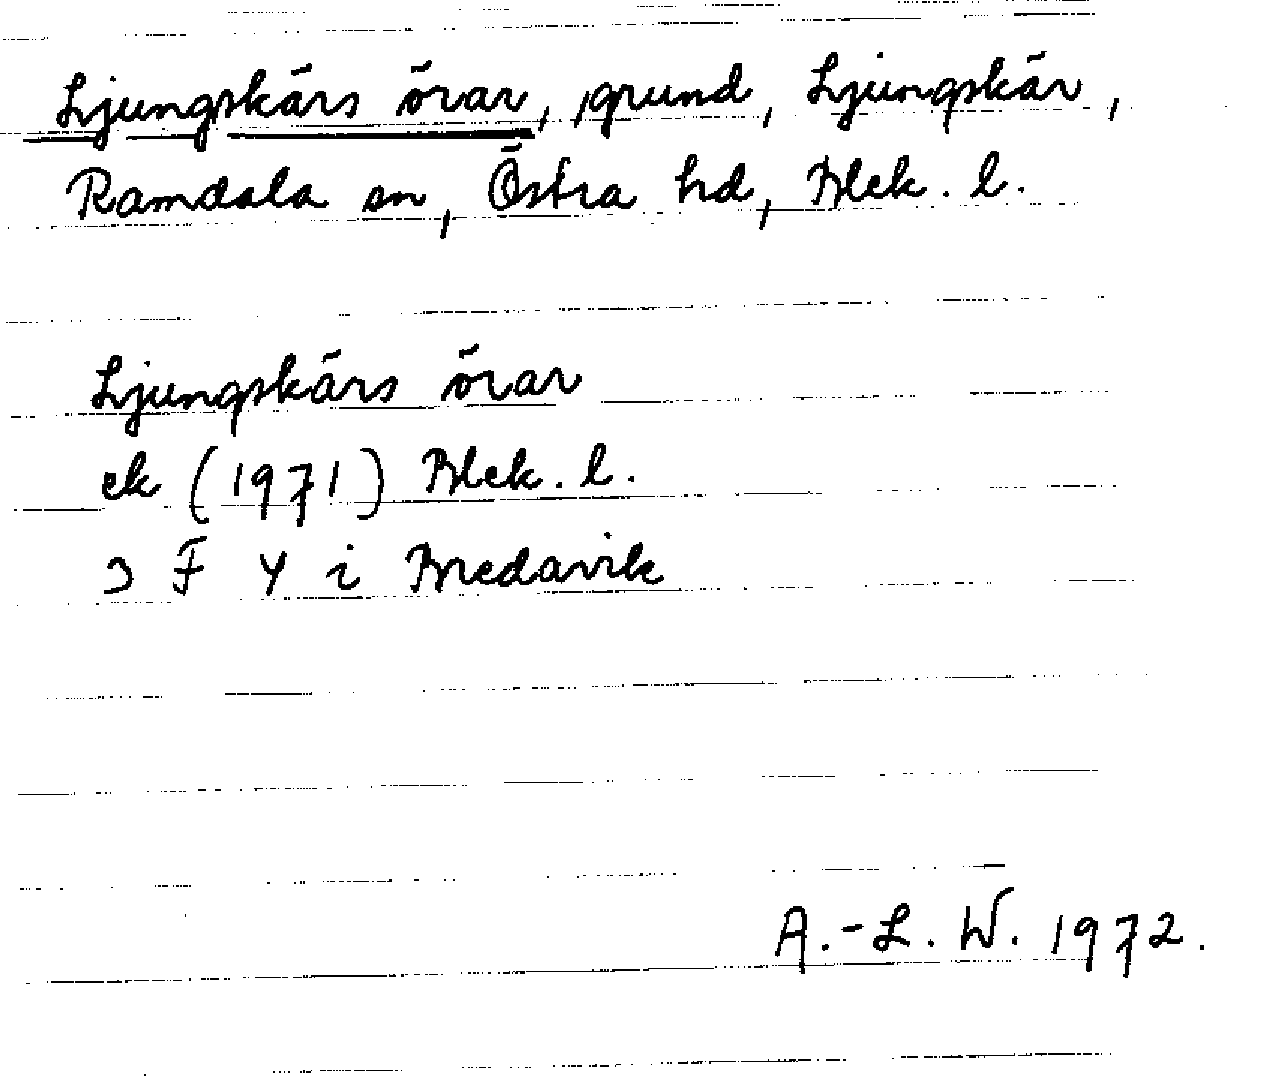 Ljungskärs örar, grund, Ljungskär,
Ramdala sn, Östra hd, Blek. l.
Ljungskärs örar
ek (1971) Blek. l.
Ɔ F Y i Bredavik
A.-L. W. 1972.